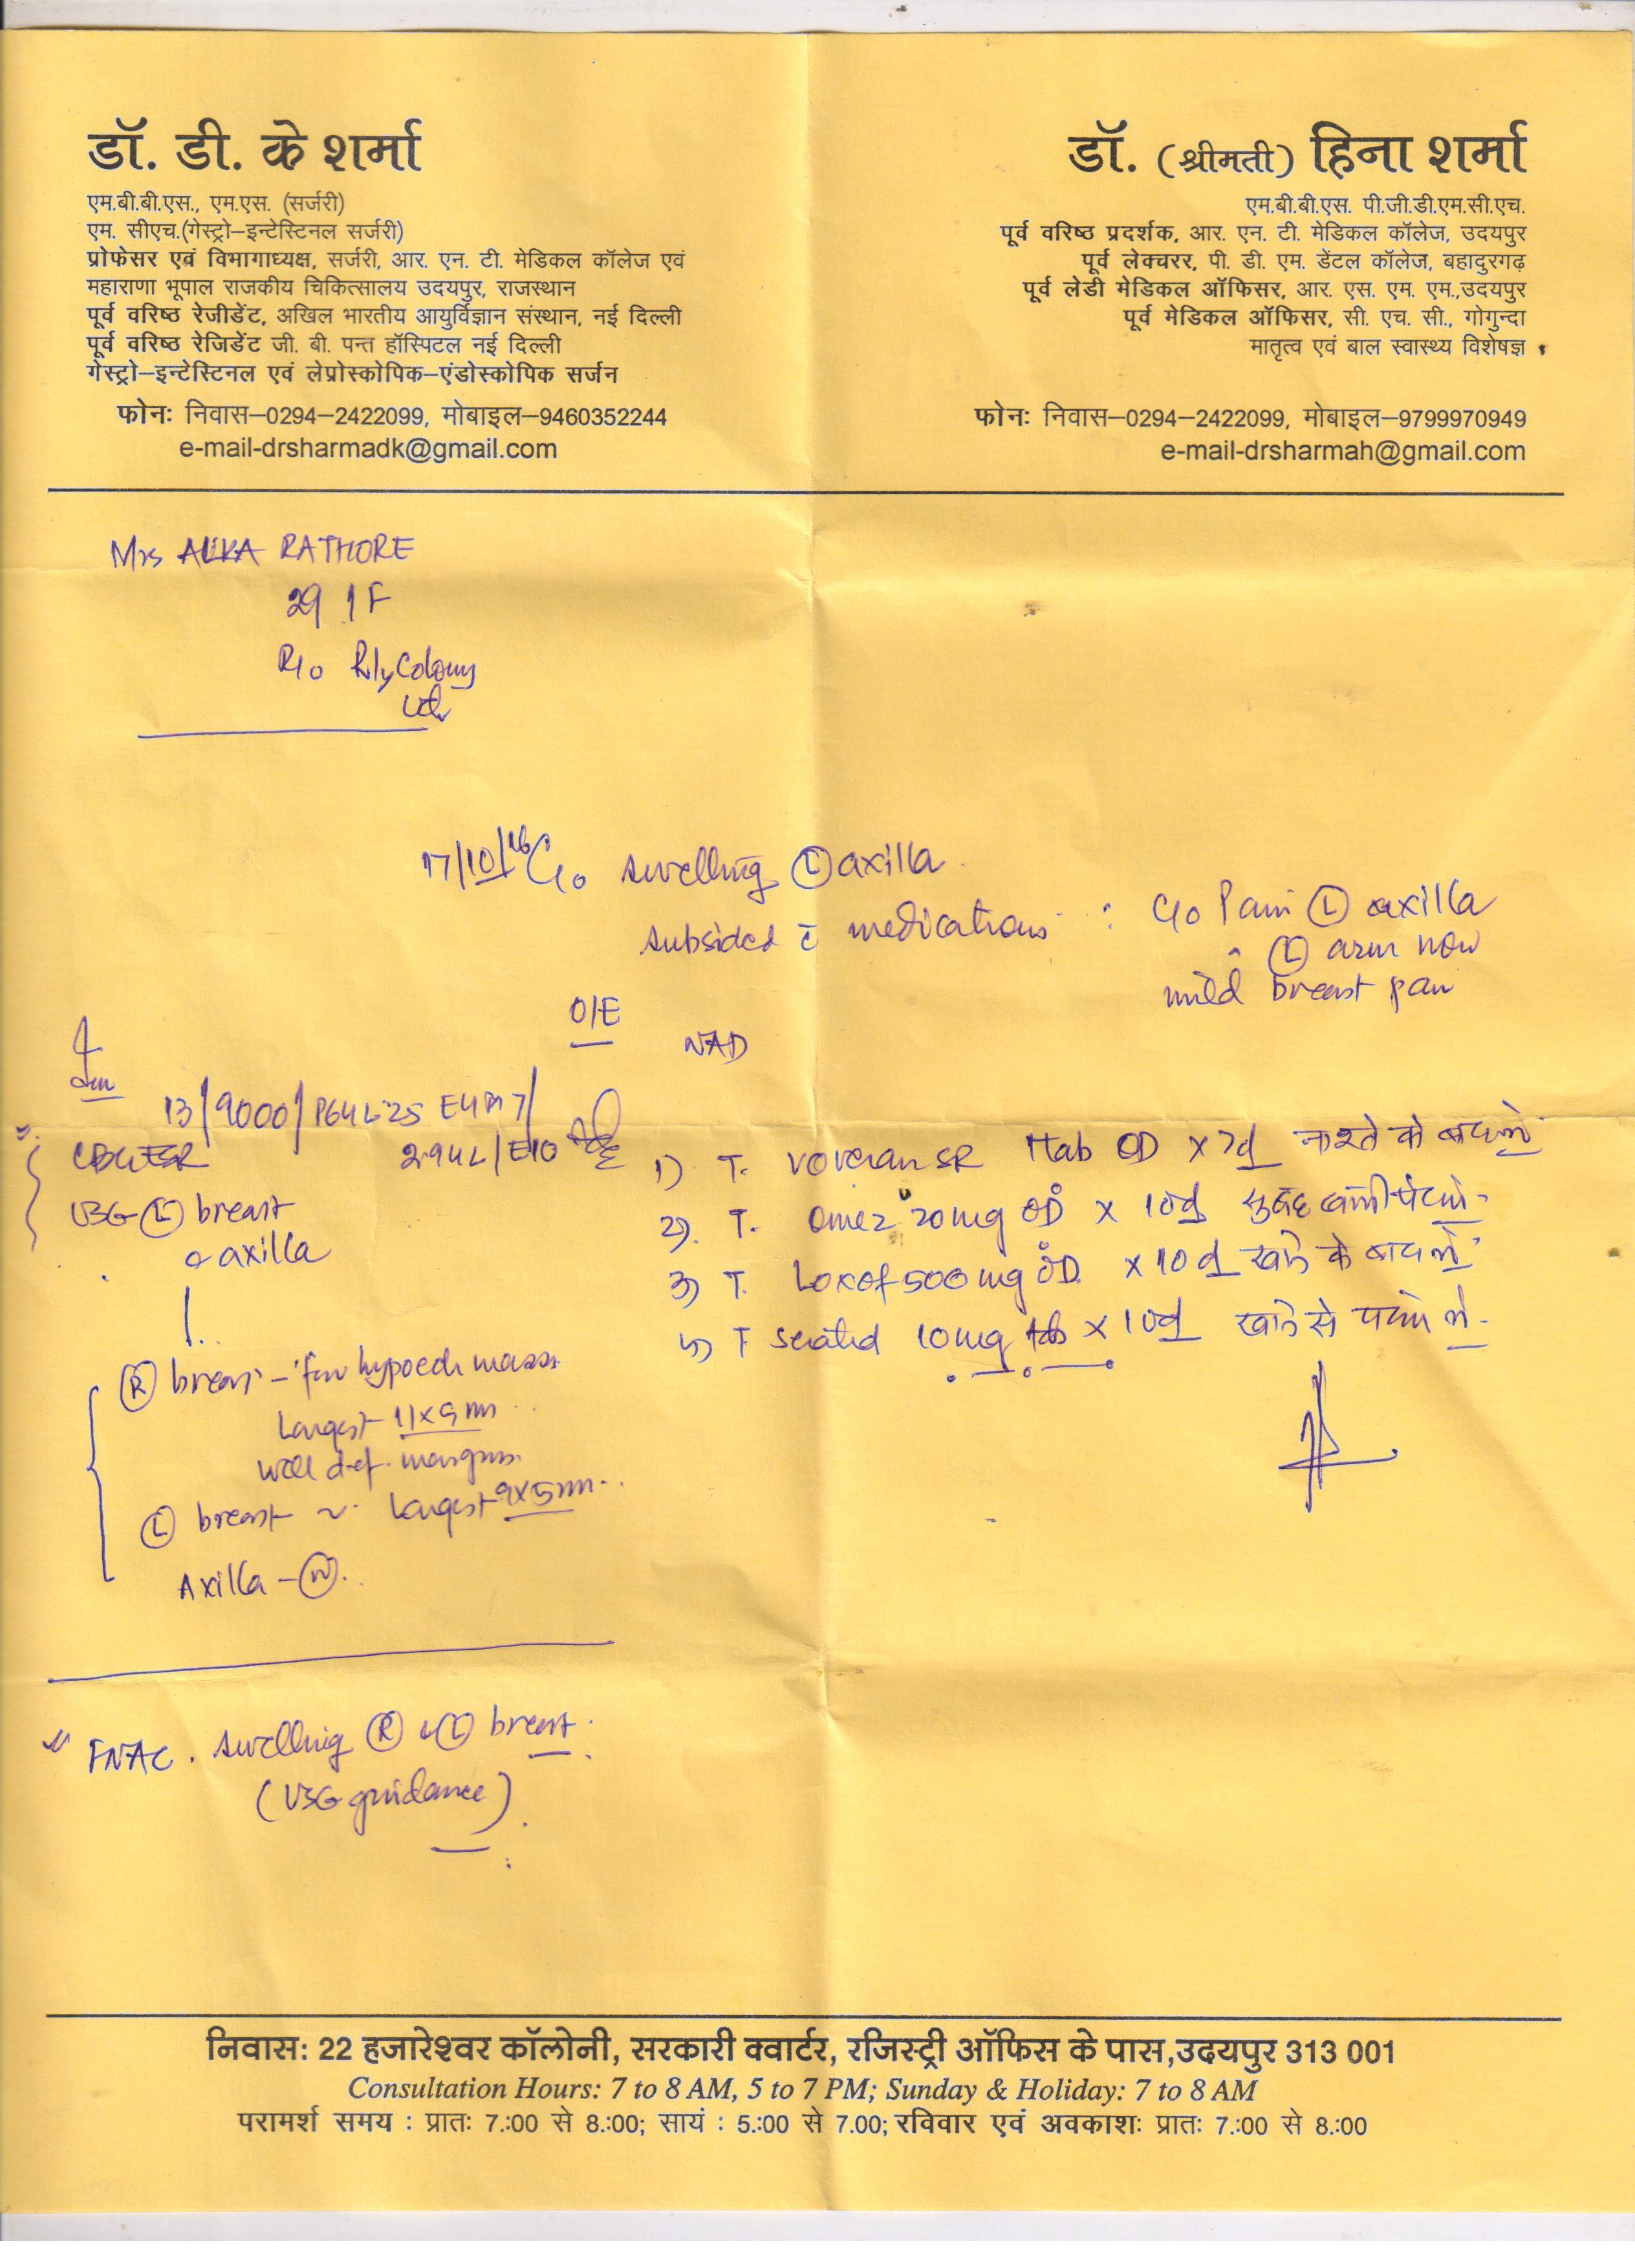 डॉ. डी. के शर्मा
एम.बी.बी.एस., एम.एस. (सर्जरी)
एम. सीएच.(गेस्ट्रो–इन्टेस्टिनल सर्जरी)
प्रोफेसर एवं विभागाध्यक्ष, सर्जरी, आर. एन. टी. मेडिकल कॉलेज एवं
महाराणा भूपाल राजकीय चिकित्सालय उदयपुर, राजस्थान
पूर्व वरिष्ठ रेजीडेंट, अखिल भारतीय आयुर्विज्ञान संस्थान, नई दिल्ली
पूर्व वरिष्ठ रेजिडेंट जी. बी. पन्त हॉस्पिटल नई दिल्ली
गेस्ट्रो–इन्टेस्टिनल एवं लेप्रोस्कोपिक–एंडोस्कोपिक सर्जन
फोनः निवास–0294–2422099, मोबाइल–9460352244
e-mail-drsharmadk@gmail.com
डॉ. (श्रीमती) हिना शर्मा
एम.बी.बी.एस. पी.जी.डी.एम.सी.एच.
पूर्व वरिष्ठ प्रदर्शक, आर. एन. टी. मेडिकल कॉलेज, उदयपुर
पूर्व लेक्चरर, पी. डी. एम. डेंटल कॉलेज, बहादुरगढ़
पूर्व लेडी मेडिकल ऑफिसर, आर. एस. एम. एम.,उदयपुर
पूर्व मेडिकल ऑफिसर, सी. एच. सी., गोगुन्दा
मातृत्व एवं बाल स्वास्थ्य विशेषज्ञ
फोनः निवास–0294–2422099, मोबाइल–9799970949
e-mail-drsharmah@gmail.com
Mrs ALKA RATHORE
29 / F
R/o Rly Colony
17/10/16 C/o swelling (L) axilla
subsided c̄ medications : C/o Pain (L) axilla
(L) arm now
mild breast pain
O/E
NAD
13/9000/P64 L25 E4 M7/
CBC ESR 2.94L/E10
USG (L) breast
& axilla
(R) breast - few hypoech masses
Largest 11x5mm
well def. margins
(L) breast ~ Largest 9x5mm
Axilla - (N).
1) T. Voveran SR 1tab OD x 7d नाश्ते के बाद लें
2) T. Omez 20mg OD x 10d सुबह खाली पेट लें
3) T. Loxof 500mg OD x 10d खाने के बाद लें
4) T 10mg x 10d खाने से पहले लें
FNAC. swelling (R) & (L) breast.
(USG guidance)
निवासः 22 हजारेश्वर कॉलोनी, सरकारी क्वार्टर, रजिस्ट्री ऑफिस के पास,उदयपुर 313 001
Consultation Hours: 7 to 8 AM, 5 to 7 PM; Sunday & Holiday: 7 to 8 AM
परामर्श समय : प्रातः 7.:00 से 8.:00; सायं : 5.:00 से 7.00; रविवार एवं अवकाशः प्रातः 7.:00 से 8.:00